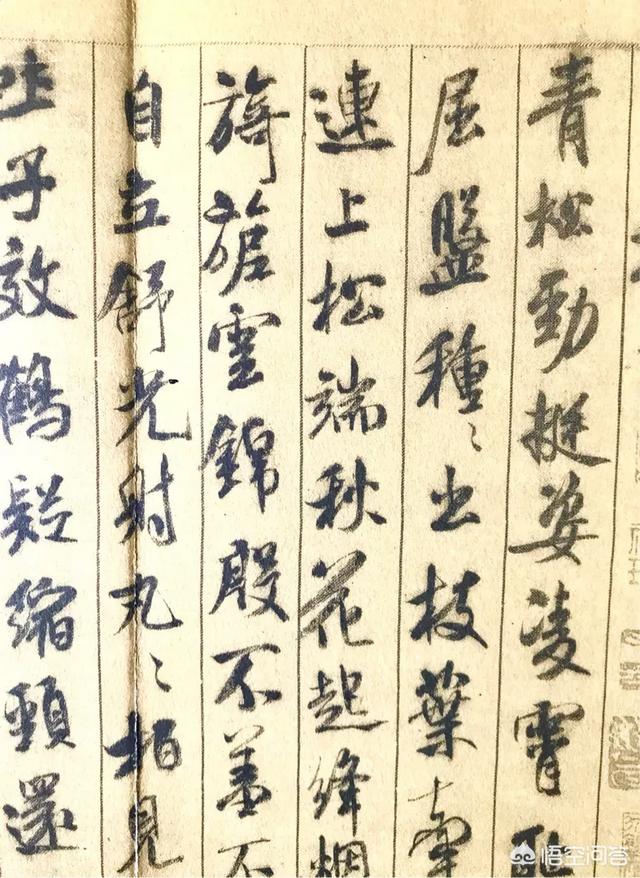 青松勁挺姿凌霄恥
屈盤種〻出枝葉牽
連上松端秋花起絳烟
旖旎雲錦殷不羞不
自立舒光射丸〻柏見
吐子效鶴疑縮頸還
悟空问答